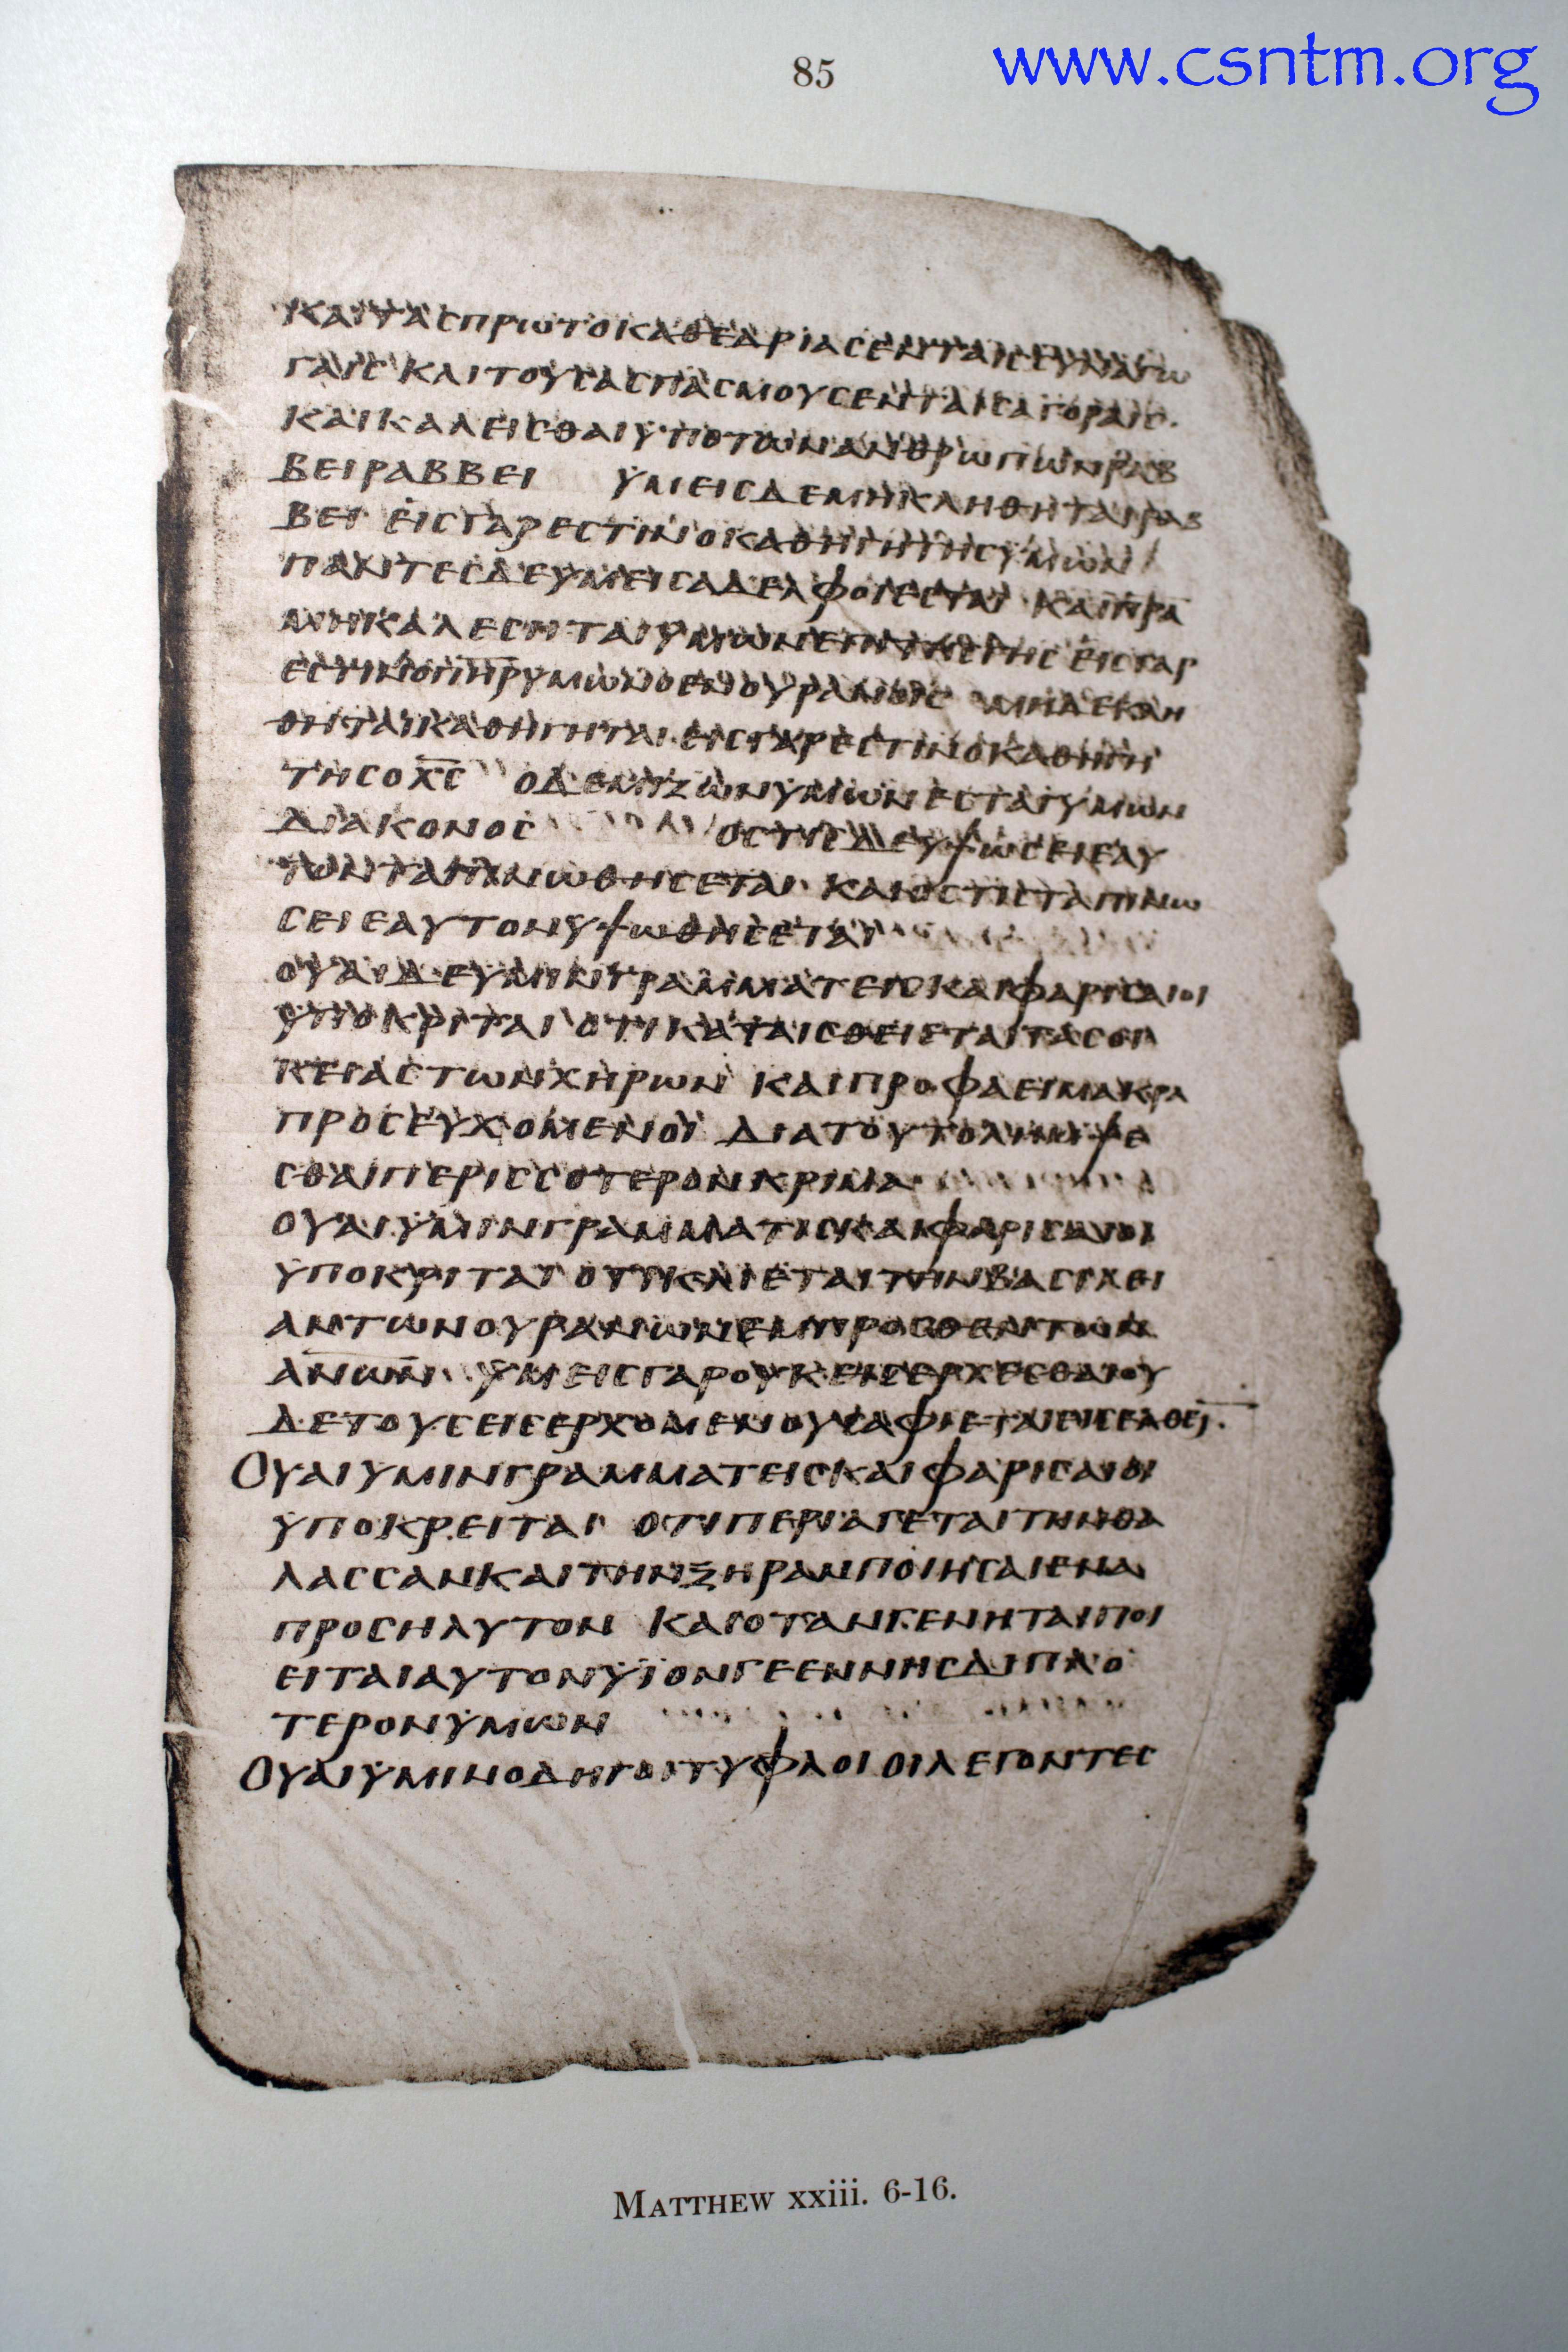 85
www.csntm.org
ΚΑΙΤΑϹΠΡΩΤΟΚΑΘΕΔΡΙΑϹΕΝΤΑΙϹϹΥΝΑΓΩ
ΓΑΙϹ ΚΑΙΤΟΥϹΑϹΠΑϹΜΟΥϹΕΝΤΑΙϹΑΓΟΡΑΙϹ·
ΚΑΙΚΑΛΕΙϹΘΑΙΫΠΟΤΩΝΑΝΘΡΩΠΩΝΡΑΒ
ΒΕΙΡΑΒΒΕΙ ΫΜΕΙϹΔΕΜΗΚΛΗΘΗΤΑΙΡΑΒ
ΒΕΙ ΕΙϹΓΑΡΕϹΤΙΝΟΚΑΘΗΓΗΤΗϹΫΜΩΝ
ΠΑΝΤΕϹΔΕΥΜΕΙϹΑΔΕΛΦΟΙΕϹΤΑΙ ΚΑΙΠ̅Ρ̅Α̅
ΜΗΚΑΛΕϹΗΤΑΙΫΜΩΝΕΠΙΤΗϹΓΗϹ ΕΙϹΓΑΡ
ΕϹΤΙΝΟΠ̅Η̅Ρ̅ΥΜΩΝΟΕΝΟΥΡΑΝΟΙϹ ΜΗΔΕΚΛΗ
ΘΗΤΑΙΚΑΘΗΓΗΤΑΙ ΕΙϹΓΑΡΕϹΤΙΝΟΚΑΘΗΓΗ
ΤΗϹΟΧ̅Ϲ̅ ΟΔΕΜΙΖΩΝΫΜΩΝΕϹΤΑΙΫΜΩΝ
ΔΙΑΚΟΝΟϹ ΟϹΤΙϹΔΕΥΨΩϹΕΙΕΑΥ
ΤΟΝΤΑΠΙΝΩΘΗϹΕΤΑΙ ΚΑΙΟϹΤΙϹΤΑΠΙΝΩ
ϹΕΙΕΑΥΤΟΝΥΨΩΘΗϹΕΤΑΙ
ΟΥΑΙΔΕΥΜΙΝΓΡΑΜΜΑΤΕΙϹΚΑΙΦΑΡΙϹΑΙΟΙ
ΫΠΟΚΡΙΤΑΙ ΟΤΙΚΑΤΑΙϹΘΕΙΕΤΑΙΤΑϹΟΙ
ΚΕΙΑϹΤΩΝΧΗΡΩΝ ΚΑΙΠΡΟΦΑΕΙΜΑΚΡΑ
ΠΡΟϹΕΥΧΟΜΕΝΟΙ ΔΙΑΤΟΥΤΟΛΗΜΨΕ
ϹΘΑΙΠΕΡΙϹϹΟΤΕΡΟΝΚΡΙΜΑ
ΟΥΑΙΫΜΙΝΓΡΑΜΜΑΤΙϹΚΑΙΦΑΡΙϹΑΙΟΙ
ΫΠΟΚΡΙΤΑΙ ΟΤΙΚΛΙΕΤΑΙΤΗΝΒΑϹΙΛΕΙ
ΑΝΤΩΝΟΥΡΑΝΩΝΕΜΠΡΟϹΘΕΝΤΩΝ
Α̅Ν̅Ω̅Ν̅ ΫΜΕΙϹΓΑΡΟΥΚΕΙϹΕΡΧΕϹΘΑΙΟΥ
ΔΕΤΟΥϹΕΙϹΕΡΧΟΜΕΝΟΥϹΑΦΙΕΤΑΙΕΙϹΕΛΘΕΙ̅·
ΟΥΑΙΥΜΙΝΓΡΑΜΜΑΤΕΙϹΚΑΙΦΑΡΙϹΑΙΟΙ
ΫΠΟΚΡΕΙΤΑΙ ΟΤΙΠΕΡΙΑΓΕΤΑΙΤΗΝΘΑ
ΛΑϹϹΑΝΚΑΙΤΗΝΞΗΡΑΝΠΟΙΗϹΑΙΕΝΑ
ΠΡΟϹΗΛΥΤΟΝ ΚΑΙΟΤΑΝΓΕΝΗΤΑΙΠΟΙ
ΕΙΤΑΙΑΥΤΟΝΫΙΟΝΓΕΕΝΝΗϹΔΙΠΛΟ
ΤΕΡΟΝΫΜΩΝ
ΟΥΑΙΥΜΙΝΟΔΗΓΟΙΤΥΦΛΟΙΟΙΛΕΓΟΝΤΕϹ
MATTHEW xxiii. 6-16.